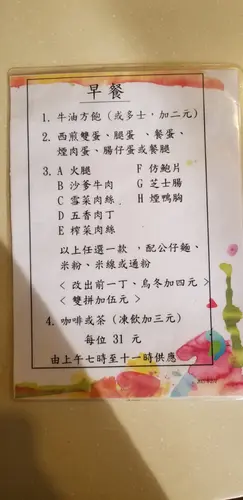 早餐
1. 牛油方飽(或多士,加二元)
2. 西煎雙蛋、腿蛋 、餐蛋、
煙肉蛋、腸仔蛋或餐腿
3. A 火腿 F 仿鮑片
B 沙爹牛肉 G 芝士腸
C 雪菜肉絲 H 煙鴨胸
D 五香肉丁
E 榨菜肉絲
以上任選一款 ,配公仔麵、
米粉、米線或通粉
< 改出前一丁、烏冬加四元 >
< 雙拼加伍元 >
4. 咖啡或茶 (凍飲加三元)
每位 31 元
由上午七時至十一時供應